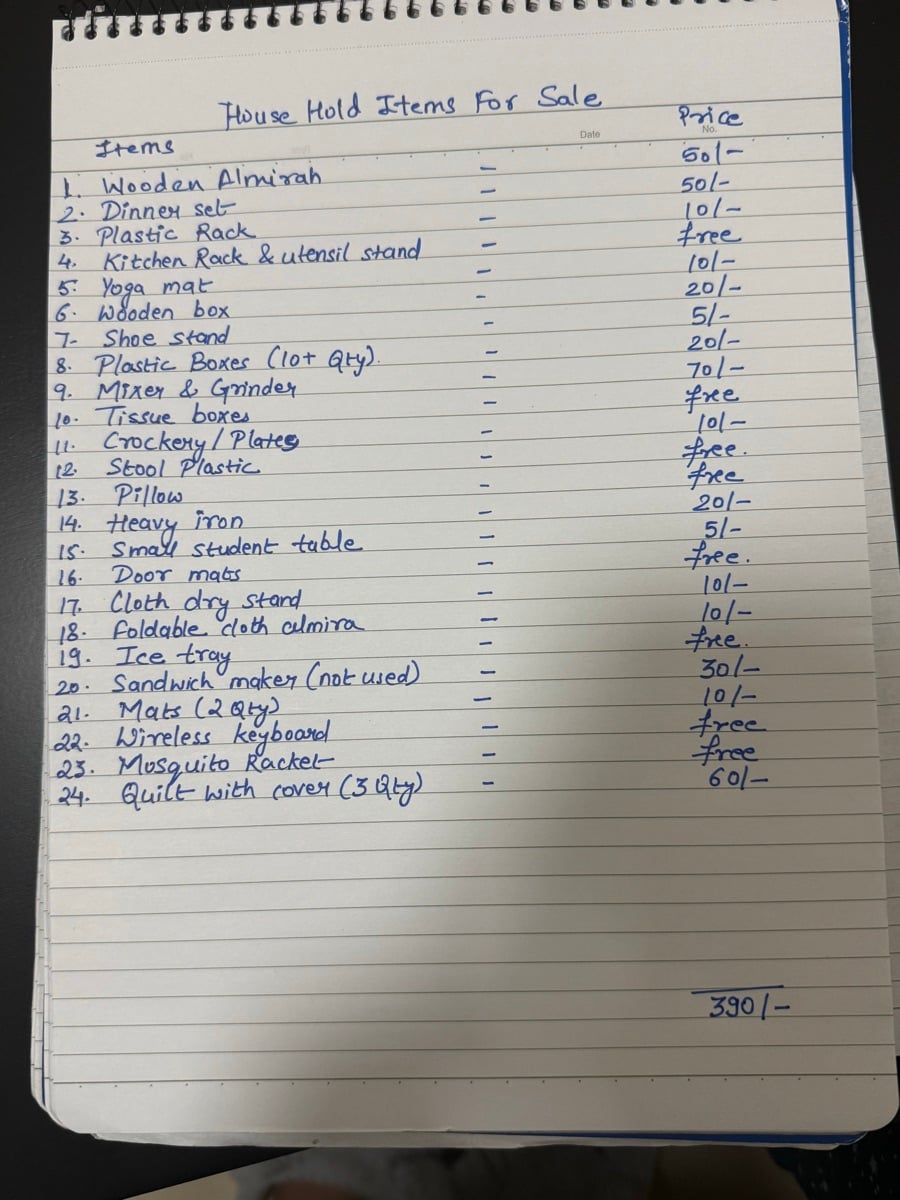 House Hold Items For Sale
Items Date No. Price
1. Wooden Almirah - 50/-
2. Dinner set - 50/-
3. Plastic Rack - 10/-
4. Kitchen Rack & utensil stand - free
5. Yoga mat - 10/-
6. Wooden box - 20/-
7- Shoe stand - 5/-
8. Plastic Boxes (10+ Qty). - 20/-
9. Mixer & Grinder - 70/-
10. Tissue boxes - free
11. Crockery / Plates - 10/-
12. Stool Plastic - free.
13. Pillow - free
14. Heavy iron - 20/-
15. Small student table - 5/-
16. Door mats - free.
17. Cloth dry stand - 10/-
18. foldable cloth almira - 10/-
19. Ice tray - free.
20. Sandwich maker (not used) - 30/-
21. Mats (2 Qty) - 10/-
22. Wireless keyboard - free
23. Mosquito Racket - free
24. Quilt with cover (3 Qty) - 60/-
390/-